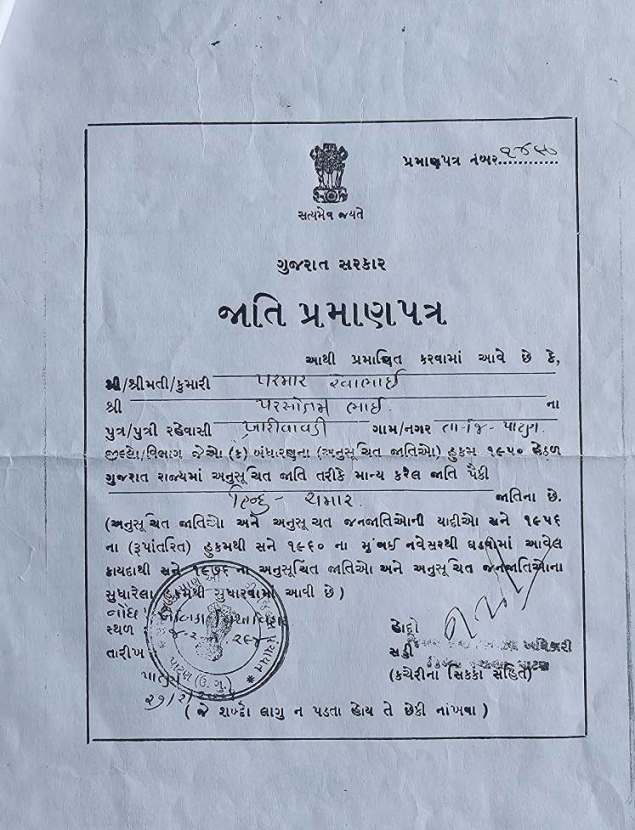 પ્રમાણપત્ર નંબર
સત્યમેવ જયતે
ગુજરાત સરકાર
જાતિ પ્રમાણપત્ર
આથી પ્રમાણિત કરવામાં આવે છે કે,
શ્રી/શ્રીમતી/કુમારી પરમાર રેવાભાઈ
શ્રી પરસોતમ ભાઈ ના
પુત્ર/પુત્રી રહેવાસી ખારીવાવડી ગામ/નગર તા-જિ-પાટણ
જીલ્લો/વિભાગ જેઓ (ક) બંધારણના (અનુસૂચિત જાતિઓ) હુકમ ૧૯૫૦ હેઠળ
ગુજરાત રાજ્યમાં અનુસૂચિત જાતિ તરીકે માન્ય કરેલ જાતિ પૈકી
હિન્દુ - ચમાર જાતિના છે.
(અનુસૂચિત જાતિઓ અને અનુસૂચત જનજાતિઓની યાદીઓ સને ૧૯૫૬
ના (રૂપાંતરિત) હુકમથી સને ૧૯૬૦ ના મુંબઈ નવેસરથી ઘડવામાં આવેલ
કાયદાથી સને ૧૯૭૬ ના અનુસૂચિત જાતિઓ અને અનુસૂચિત જનજાતિઓના
સુધારેલા હુકમથી સુધારવામાં આવી છે)
નોંધ
સ્થળ હોદ્દો
તારીખ સહી અધિકારી
પાટણ (ઉ.ગુ.) પાટણ
(કચેરીના સિક્કા સહિત)
(જે શબ્દો લાગુ ન પડતા હોય તે છેકી નાંખવા)